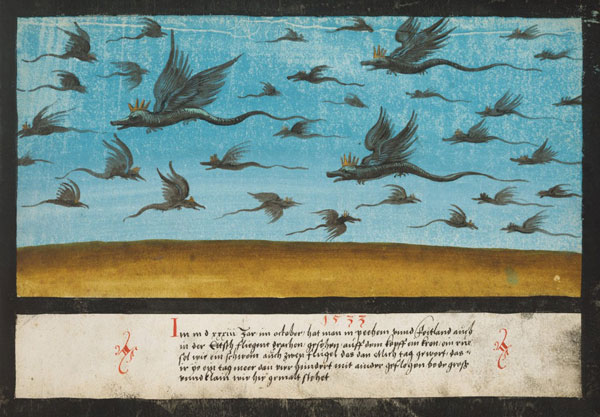 1533
Im m d xxxiii Jar im october hat man in pechem vnnd Foitland auch
in der fliegent drachen gesehen auff dem kopff ein kron ein rue
sel wie ein schwein auch zwen fliegel das etlich tag gewert das
ir vf ein tag meer dan vier hundert mit ainder geflogen bede groß
vnnd klain wie hie gemalt stehet